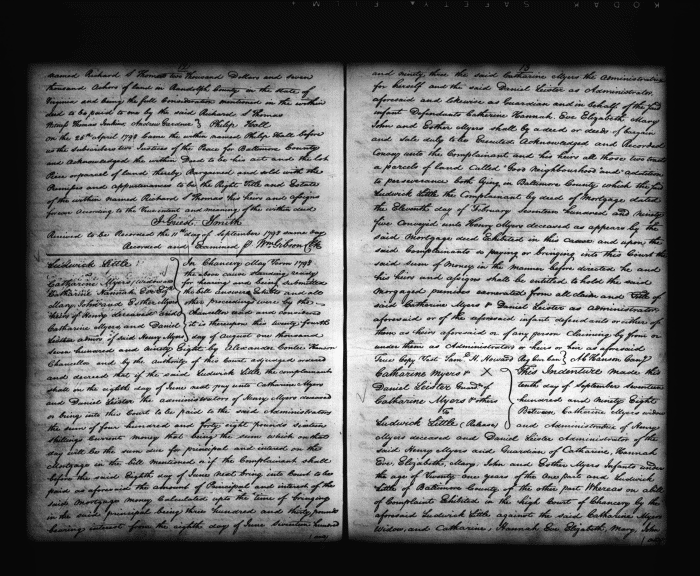 12
named Richard S Thomas two thousand Dollars and seven
thousand Acres of land in Randolph County in the state of
Virginia and being the full Consideration mentioned in the within
deed to be paid to me by the said Richard S Thomas
Philip Hall
on the 26th April 1798 Came the within named Philip Hall before
us the subscribers two Justices of the Peace for Baltimore County
and Acknowledged the within Deed to be his act and the lot
Piece or parcel of land thereby Bargained and sold with the
Premises and appurtenances to be the Right, Title and Estate
of the within named Richard S Thomas his heirs and assigns
forever According to the true intent and meaning of the within deed
Received to be Recorded the 11th day of September 1798 same day
Recorded and Examined Wm Gibson Clk
Ludwick Little
Catharine Myers, widow
Catharine Hannah, Eve Eliza
Mary, John and Esther Myers
heirs of Henry deceased and
Catharine Myers and Daniel
Leister admors of said Henry Myers
In Chancery May Term 1798
the above cause standing ready
for hearing and being submitted
the bill answers Exhibits and all
other proceedings were by the
Chancellor read and considered
it is thereupon this twenty fourth
day of August one thousand
seven hundred and Ninety Eight by Alexander Contee Hanson
Chancellor and by the authority of this Court adjudged ordered
and decreed that if the said Ludwick Little the complainant
shall on the eighth day of June next pay unto Catharine Myers
and Daniel Leister the administrators of Henry Myers deceased
or bring into this Court to be paid to the said Administrators
the sum of four hundred and forty eight pounds sixteen
shillings Current money that being the sum which on that
day will be the sum due for principal and interest on the
Mortgage in the bill mentioned or if the Complainant shall
before the said Eighth day of June next bring into Court to be
paid as aforesaid the amount of Principal and interest of the
said mortgage money Calculated upto the time of bringing
in the said principal being three hundred and thirty pounds
bearing interest from the eighth day of June seventeen hundred
13
and ninety three the said Catharine Myers the Administratrix
for herself and the said Daniel Leister as Administrator
aforesaid and likewise as Guardian and in behalf of the
infant Defendants Catharine Hannah Eve Elizabeth Mary
John and Esther Myers shall by a deed or deeds of bargain
and sale duly to be Executed Acknowledged and Recorded
Convey unto the Complainant and his heirs all those two tracts
or parcels of land Called Good Neighbourhood and addition
to perseverance both lying in Baltimore County which the said
Ludwick Little the Complainant by deed of Mortgage dated
the Eleventh day of February Seventeen hundred and Ninety
five Conveyed unto Henry Myers deceased as appears by the
said Mortgage deed Exhibited in this cause and upon the
said Complainants so paying or bringing into this Court the
said sum of Money in the manner before directed he and
his heirs and assigns shall be entitled to hold the said
Mortgaged premises exonerated from all claim and Title of
said Catharine Myers & Daniel Leister as Administrators
aforesaid or of the aforesaid infant defendants or either of
them as heirs aforesaid or of any person Claiming by from or
under them as Administrators or heirs or heir as aforesaid
True Copy Test Saml H Howard Reg Cur Can
Catharine Myers &
Daniel Leister Guardn of
Catharine Myers & others
to
Ludwick Little (Release)
This Indenture made this
tenth day of September seventeen
hundred and ninety Eight
Between Catharine Myers widow
and Administratrix of Henry
Myers deceased and Daniel Leister Administrator of the
said Henry Myers and Guardian of Catharine, Hannah
Eve, Elizabeth, Mary, John and Esther Myers Infants under
the age of Twenty one years of the one part and Ludwick
Little of Baltimore County of the other part Whereas on a bill
of Complaint Exhibited in the high Court of Chancery by the
aforesaid Ludwick Little against the said Catharine Myers
Widow, and Catharine, Hannah Eve Elizabeth, Mary, John
KODAK SAFETY FILM